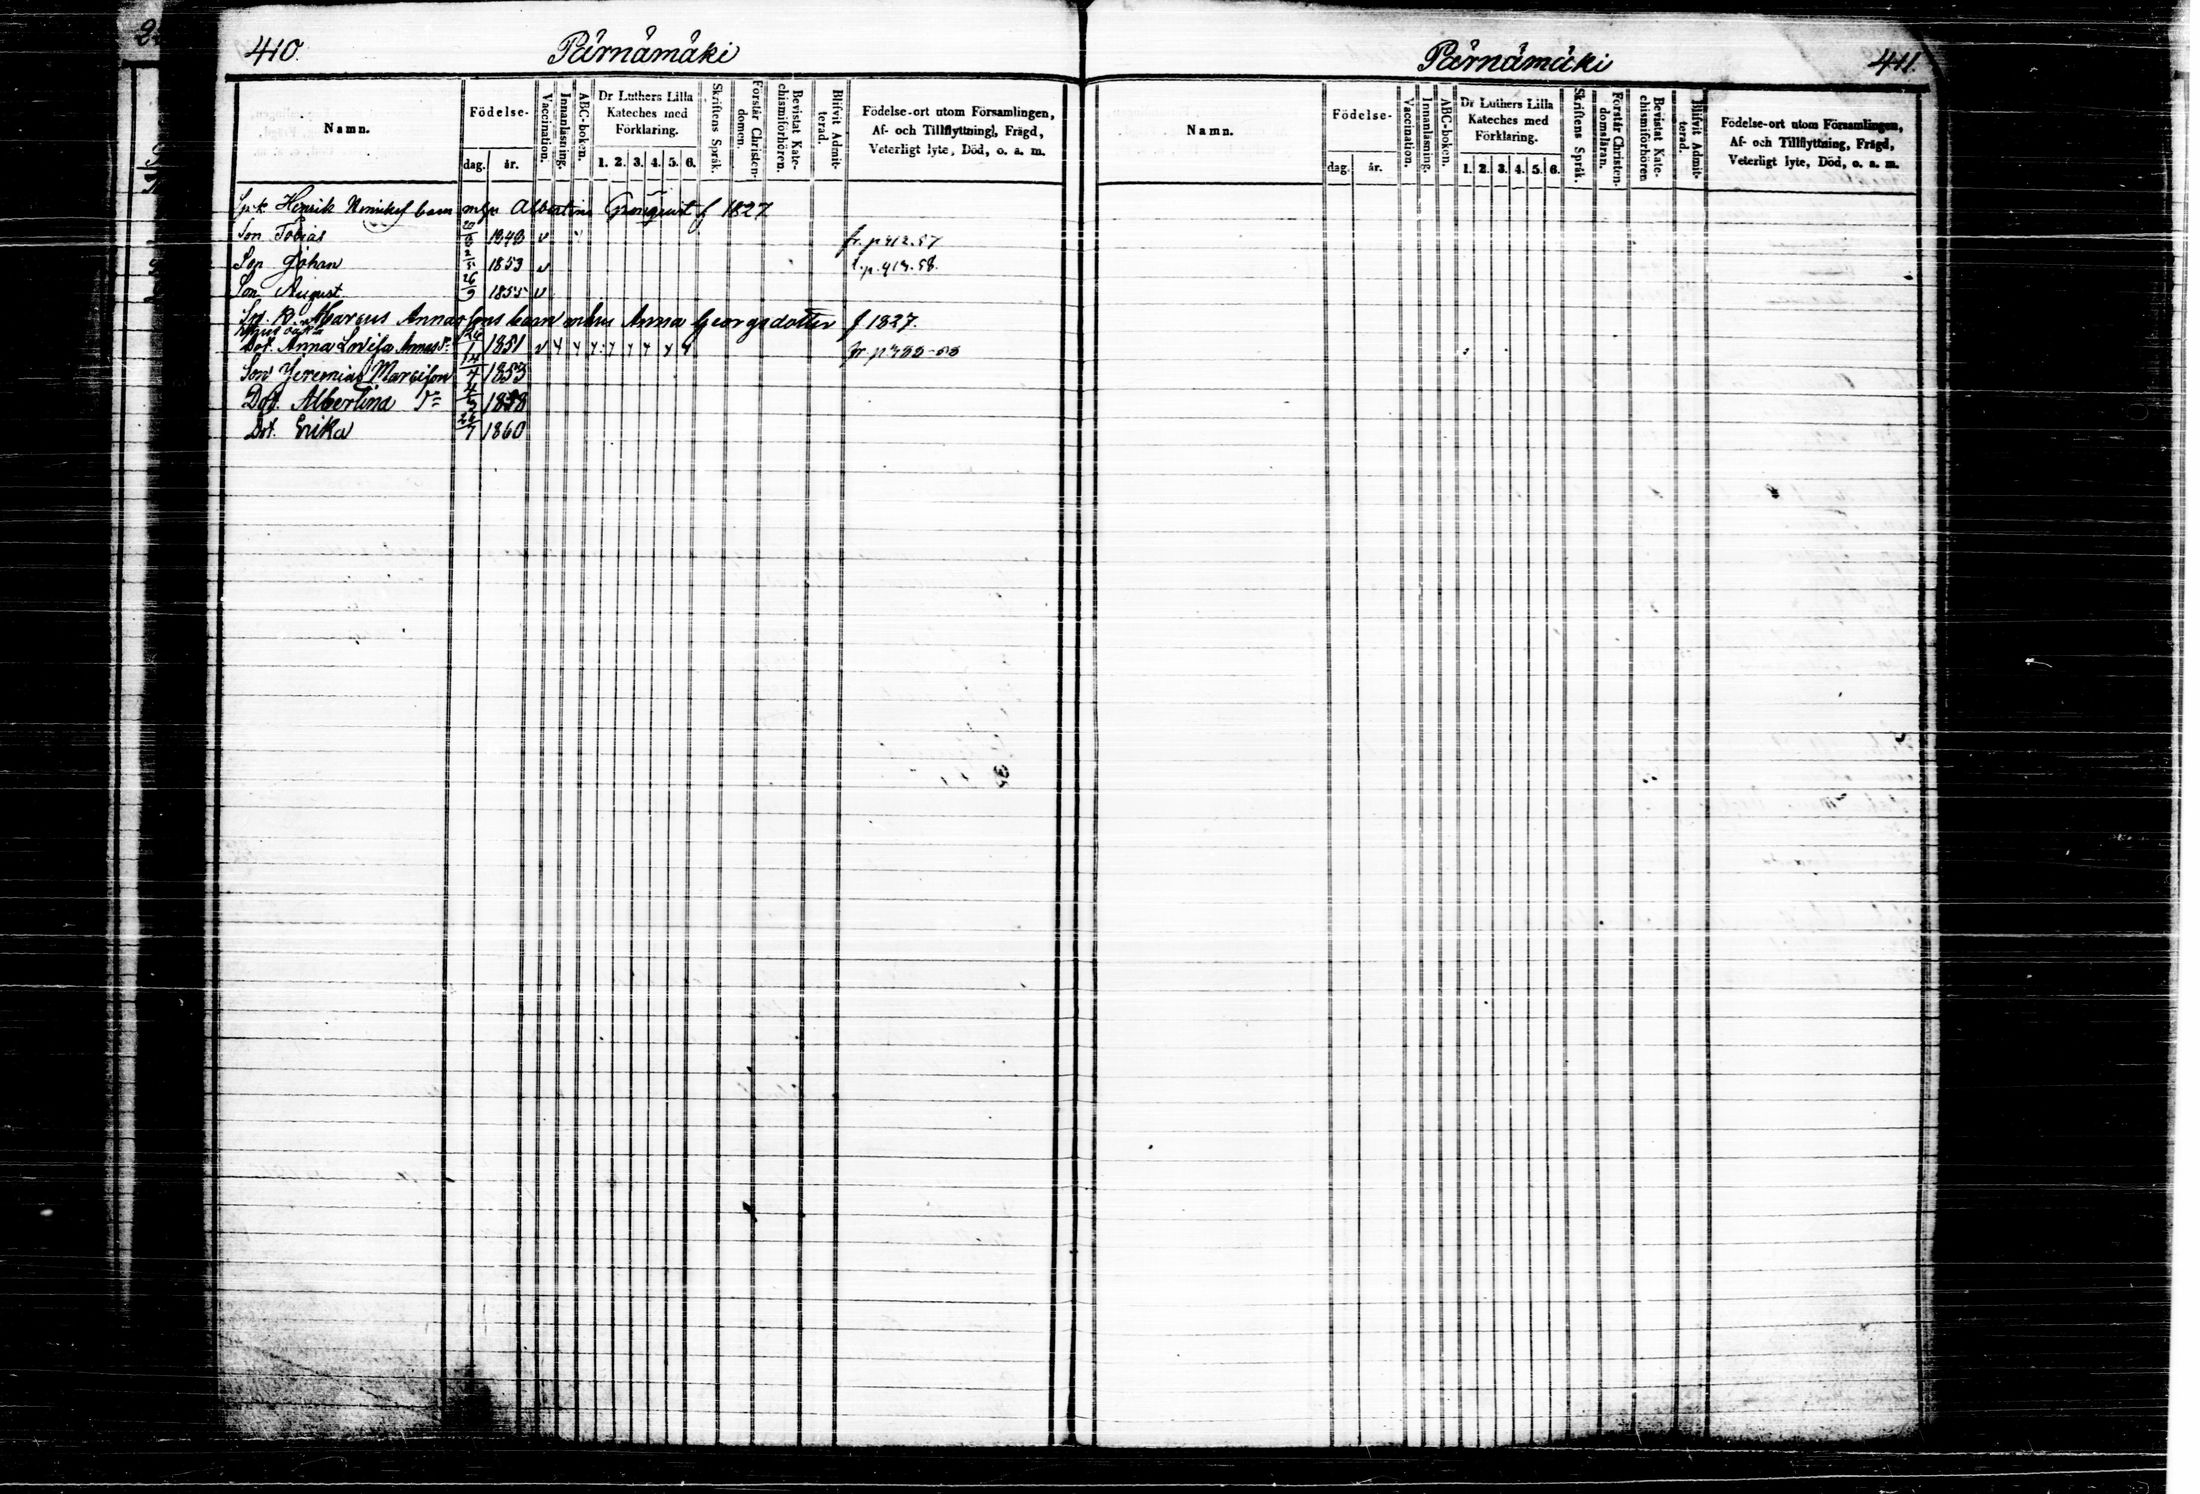 410. Pärnämäki
Namn. Födelse- dag. år. Vaccination. Innanläsning. ABC-boken. Dr Luthers Lilla Kateches med Förklaring. 1. 2. 3. 4. 5. 6. Skriftens Språk. Förstår Christendomen. Bevistat Katechismiförhören. Blifvit Admitterad. Födelse-ort utom Församlingen, Af- och Tillflyttningl, Frägd, Veterligt lyte, Död, o. a. m.
Henrik barn Albertina f 1827
Son Tobias 1848 v fr. p 412.57
Son Johan 1853 v p. 413.58.
Son August 26/9 1855 v
Marcus barn Anna Georgsdotter f 1827.
Dot. Anna Lovisa 1851 v
Son Jeremias Marcisson 14/4 1853
Dot. Albertina 1858
Dot. Erika 26/7 1860
Pärnämäki 411.
Namn. Födelse- dag. år. Vaccination. Innanläsning. ABC-boken. Dr Luthers Lilla Kateches med Förklaring. 1. 2. 3. 4. 5. 6. Skriftens Språk. Förstår Christendomsläran. Bevistat Katechismiförhören Blifvit Admitterad. Födelse-ort utom Församlingen, Af- och Tillflyttning, Frägd, Veterligt lyte, Död, o. a. m.